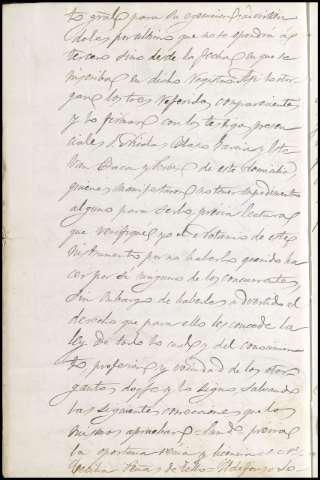 to gral para su
doles por ultimo que no se opondrá a
tercero sino desde la fecha en que se
inscriba en dicho registro. Asi lo otor
gan los tres referidos comparecientes
y lo firman con los testigos presen
ciales D. Nicolas
de este domicilio
quienes manifestaron no tener impedimento
alguno para serlo, previa lectura
que verifiqué yo el Notario de este
instrumento por no haberlo querido ha
cer por sí ninguno de los concurrentes
sin embargo de haberles advertido el
derecho que para ello les concede la
ley. De todo lo cual y del conocimien
to, profesion y vecindad de los otor
gantes, doy fe y lo signo, salvando
las siguientes correcciones que los
mismos aprueban = previa
la oportuna venia y licencia =
de Tello = Ildefonso